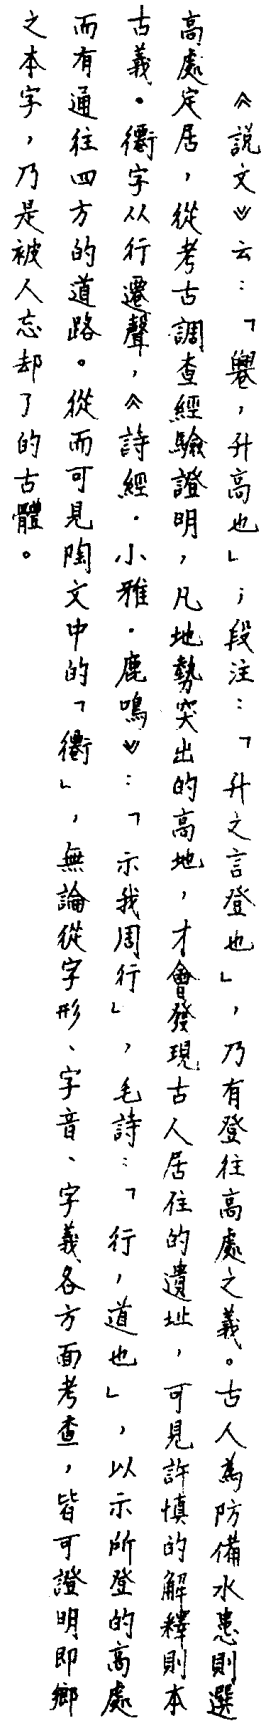 《說文》云：「䙴，升高也」；段注：「升之言登也」，乃有登往高處之義。古人為防備水患則選
高處定居，從考古調查經驗證明，凡地勢突出的高地，才會發現古人居住的遺址，可見許慎的解釋則本
古義。衢字从行遷聲，《詩經．小雅．鹿鳴》：「示我周行」，毛詩：「行，道也」，以示所登的高處
而有通往四方的道路。從而可見陶文中的「衢」，無論從字形、字音、字義各方面考查，皆可證明即鄉
之本字，乃是被人忘却了的古體。